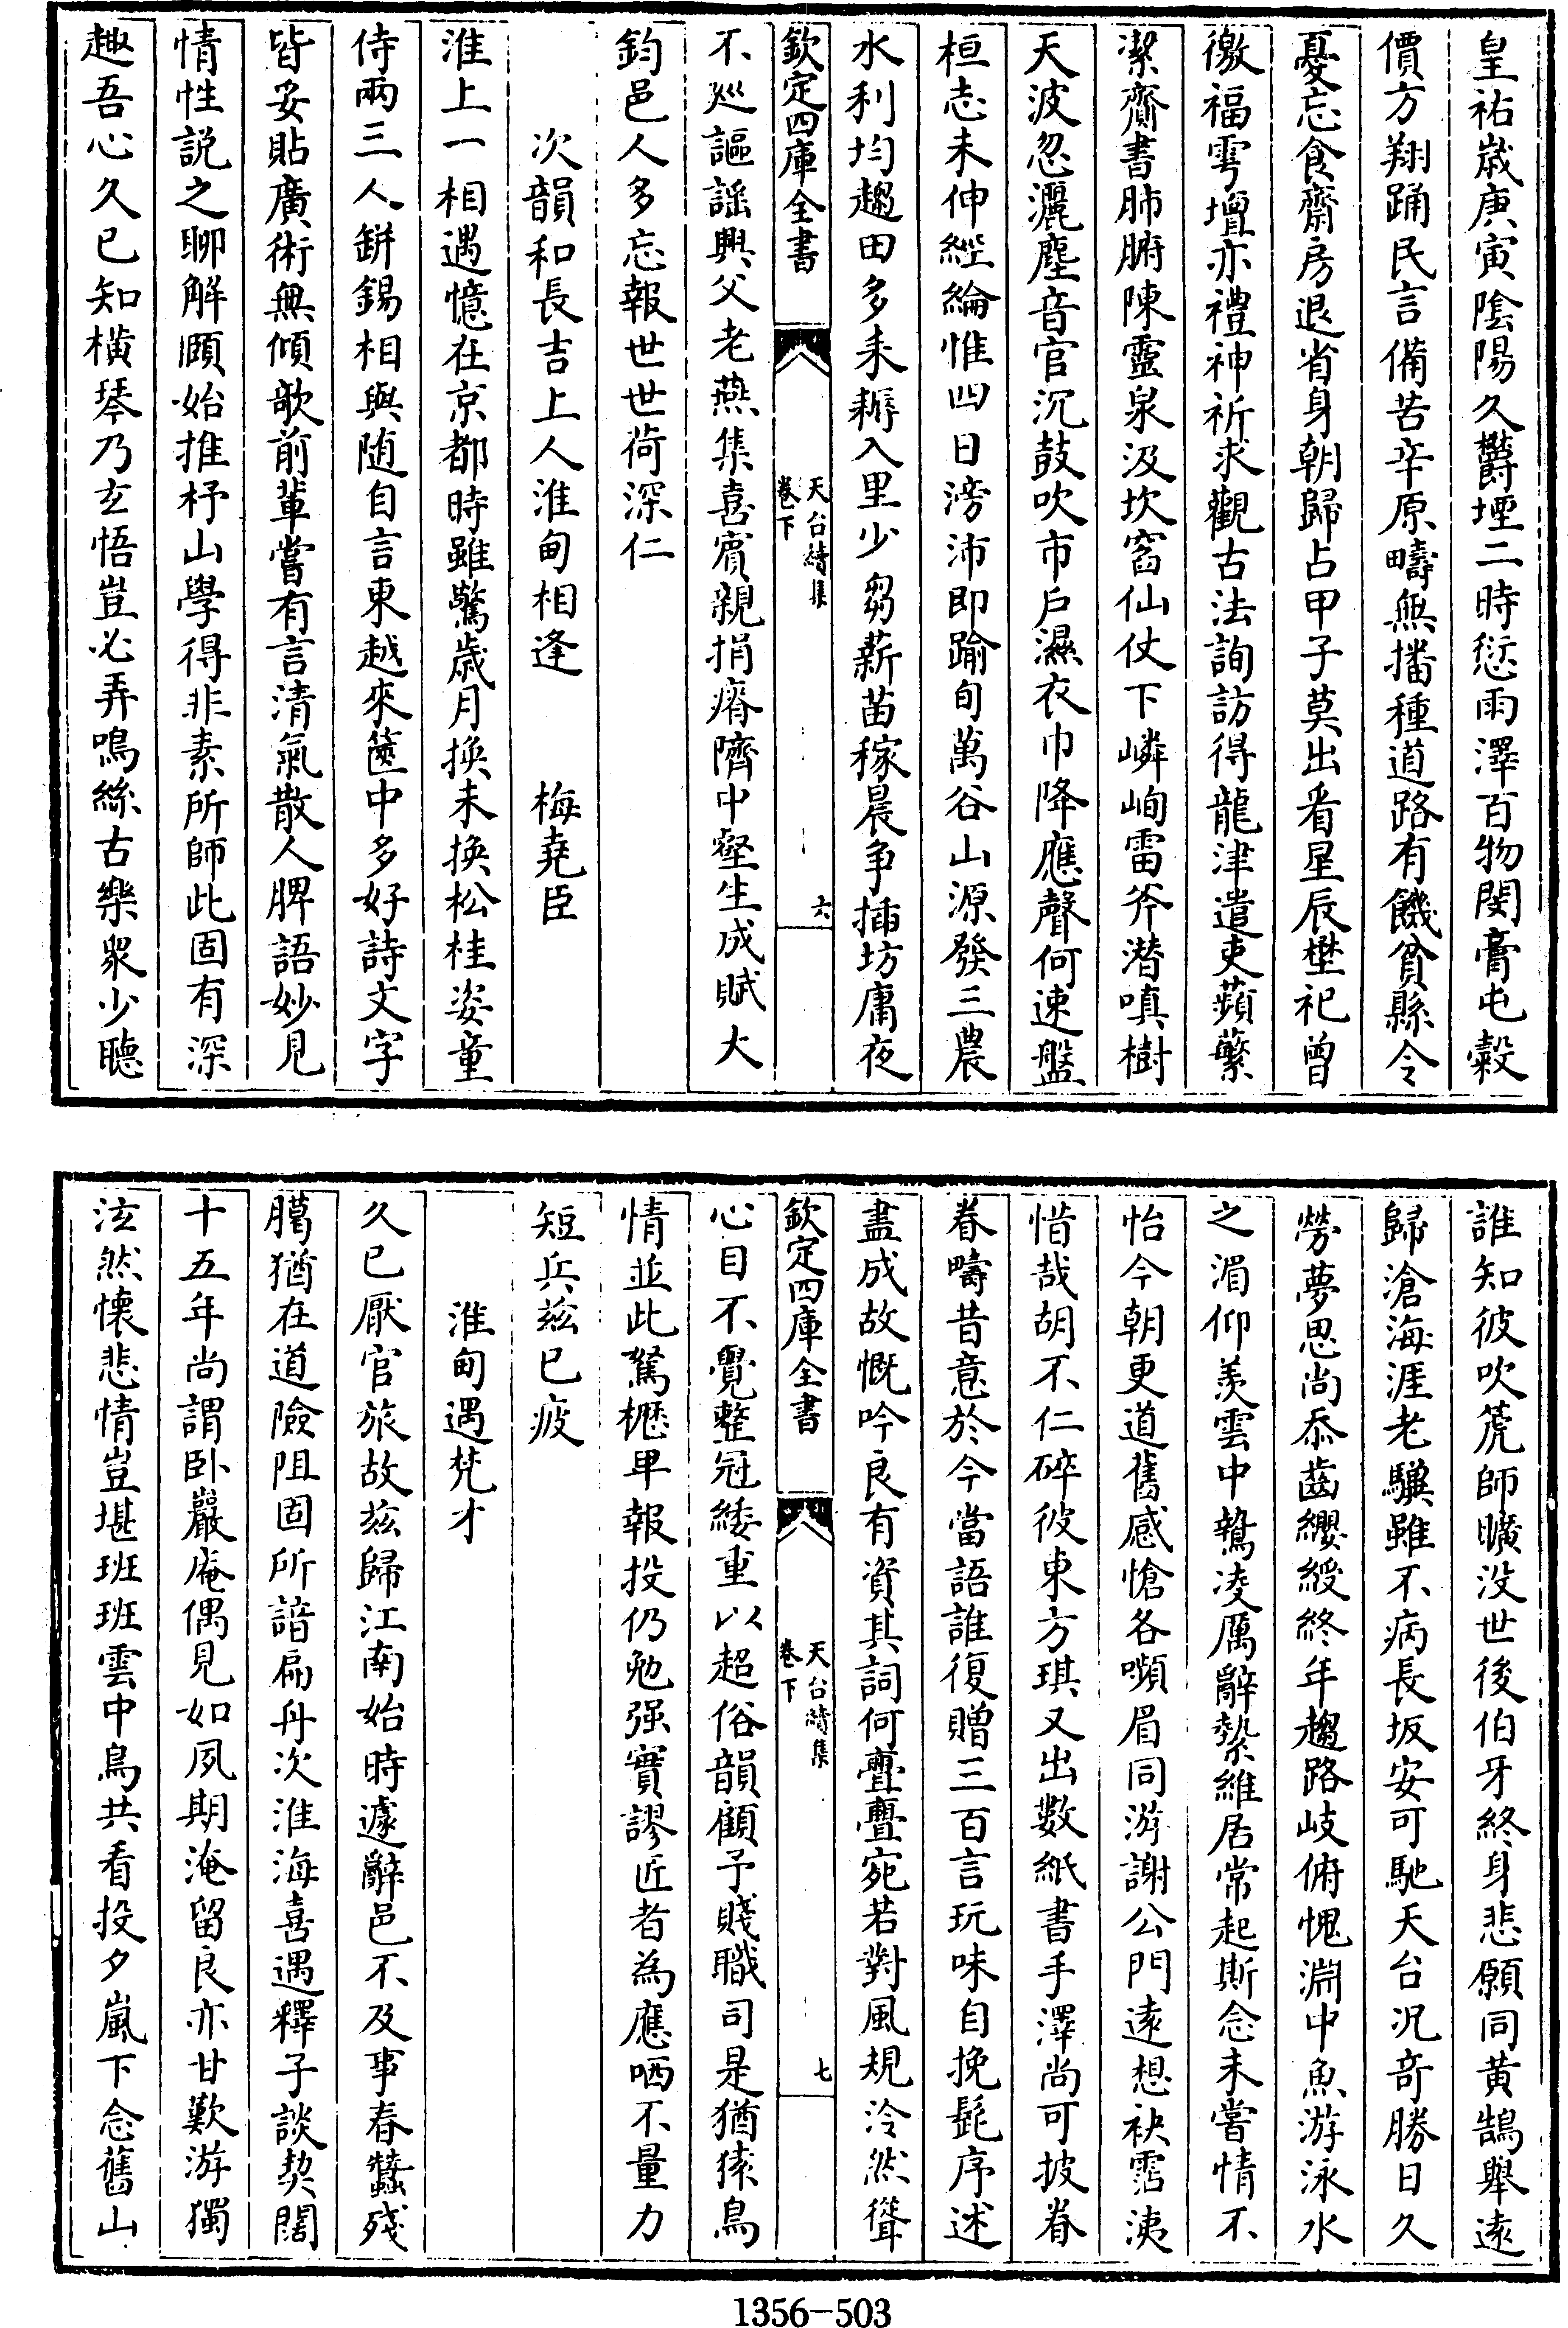 皇祐歳庚寅陰陽久欝堙二時愆雨澤百物閔膏屯穀
價方翔踊民言備苦辛原疇無播種道路有饑貧縣令
憂忘食齋房退省身朝歸占甲子莫出看星辰壄祀曾
徼福雩壇亦禮神祈求觀古法詢訪得龍津遣吏蘋蘩
潔齎書肺腑陳靈泉汲坎窞仙仗下嶙峋雷斧潜嗔樹
天波忽灑塵音官沉鼓吹市戶濕衣巾降應聲何速盤
桓志未伸經綸惟四日滂沛即踰旬萬谷山源發三農
水利均趨田多耒耨入里少芻薪苗稼晨争插坊庸夜
欽定四庫全書
天台續集
卷下
六
不廵謳謡興父老燕集喜賓親捐瘠隮中壑生成賦大
鈞邑人多忘報世世荷深仁
次韻和長吉上人淮甸相逢 梅堯臣
淮上一相遇憶在京都時雖驚歳月換未換松桂姿童
侍兩三人缾錫相與随自言東越來篋中多好詩文字
皆妥貼廣術無傾欹前輩嘗有言清氣散人脾語妙見
情性說之聊解頤始推杼山學得非素所師此固有深
趣吾心久已知橫琴乃玄悟豈必弄鳴絲古樂衆少聽
誰知彼吹箎師曠没世後伯牙終身悲願同黄鵠舉逺
歸滄海涯老驥雖不病長坂安可馳天台况竒勝日久
勞夢思尚忝齒纓綬終年趨路岐俯愧淵中魚游泳水
之湄仰羡雲中鷙凌厲辭縶維居常起斯念未嘗情不
怡今朝更道舊感愴各嚬眉同游謝公門逺想袂霑洟
惜哉胡不仁碎彼東方琪又出數紙書手澤尚可披眷
眷疇昔意於今當語誰復贈三百言玩味自挽髭序述
盡成故慨吟良有資其詞何亹亹宛若對風規泠然聳
欽定四庫全書
天台續集
卷下
七
心目不覺整冠緌重以超俗韻顧予賤職司是猶猿鳥
情並此駑櫪卑報投仍勉强實謬匠者為應哂不量力
短兵茲已疲
淮甸遇梵才
久已厭官旅故茲歸江南始時遽辭邑不及事春蠶殘
臈猶在道險阻固所諳扁舟次淮海喜遇釋子談契闊
十五年尚謂卧巖庵偶見如夙期淹留良亦甘歎游獨
泫然懷悲情豈堪班班雲中鳥共看投夕嵐下念舊山
1356-503